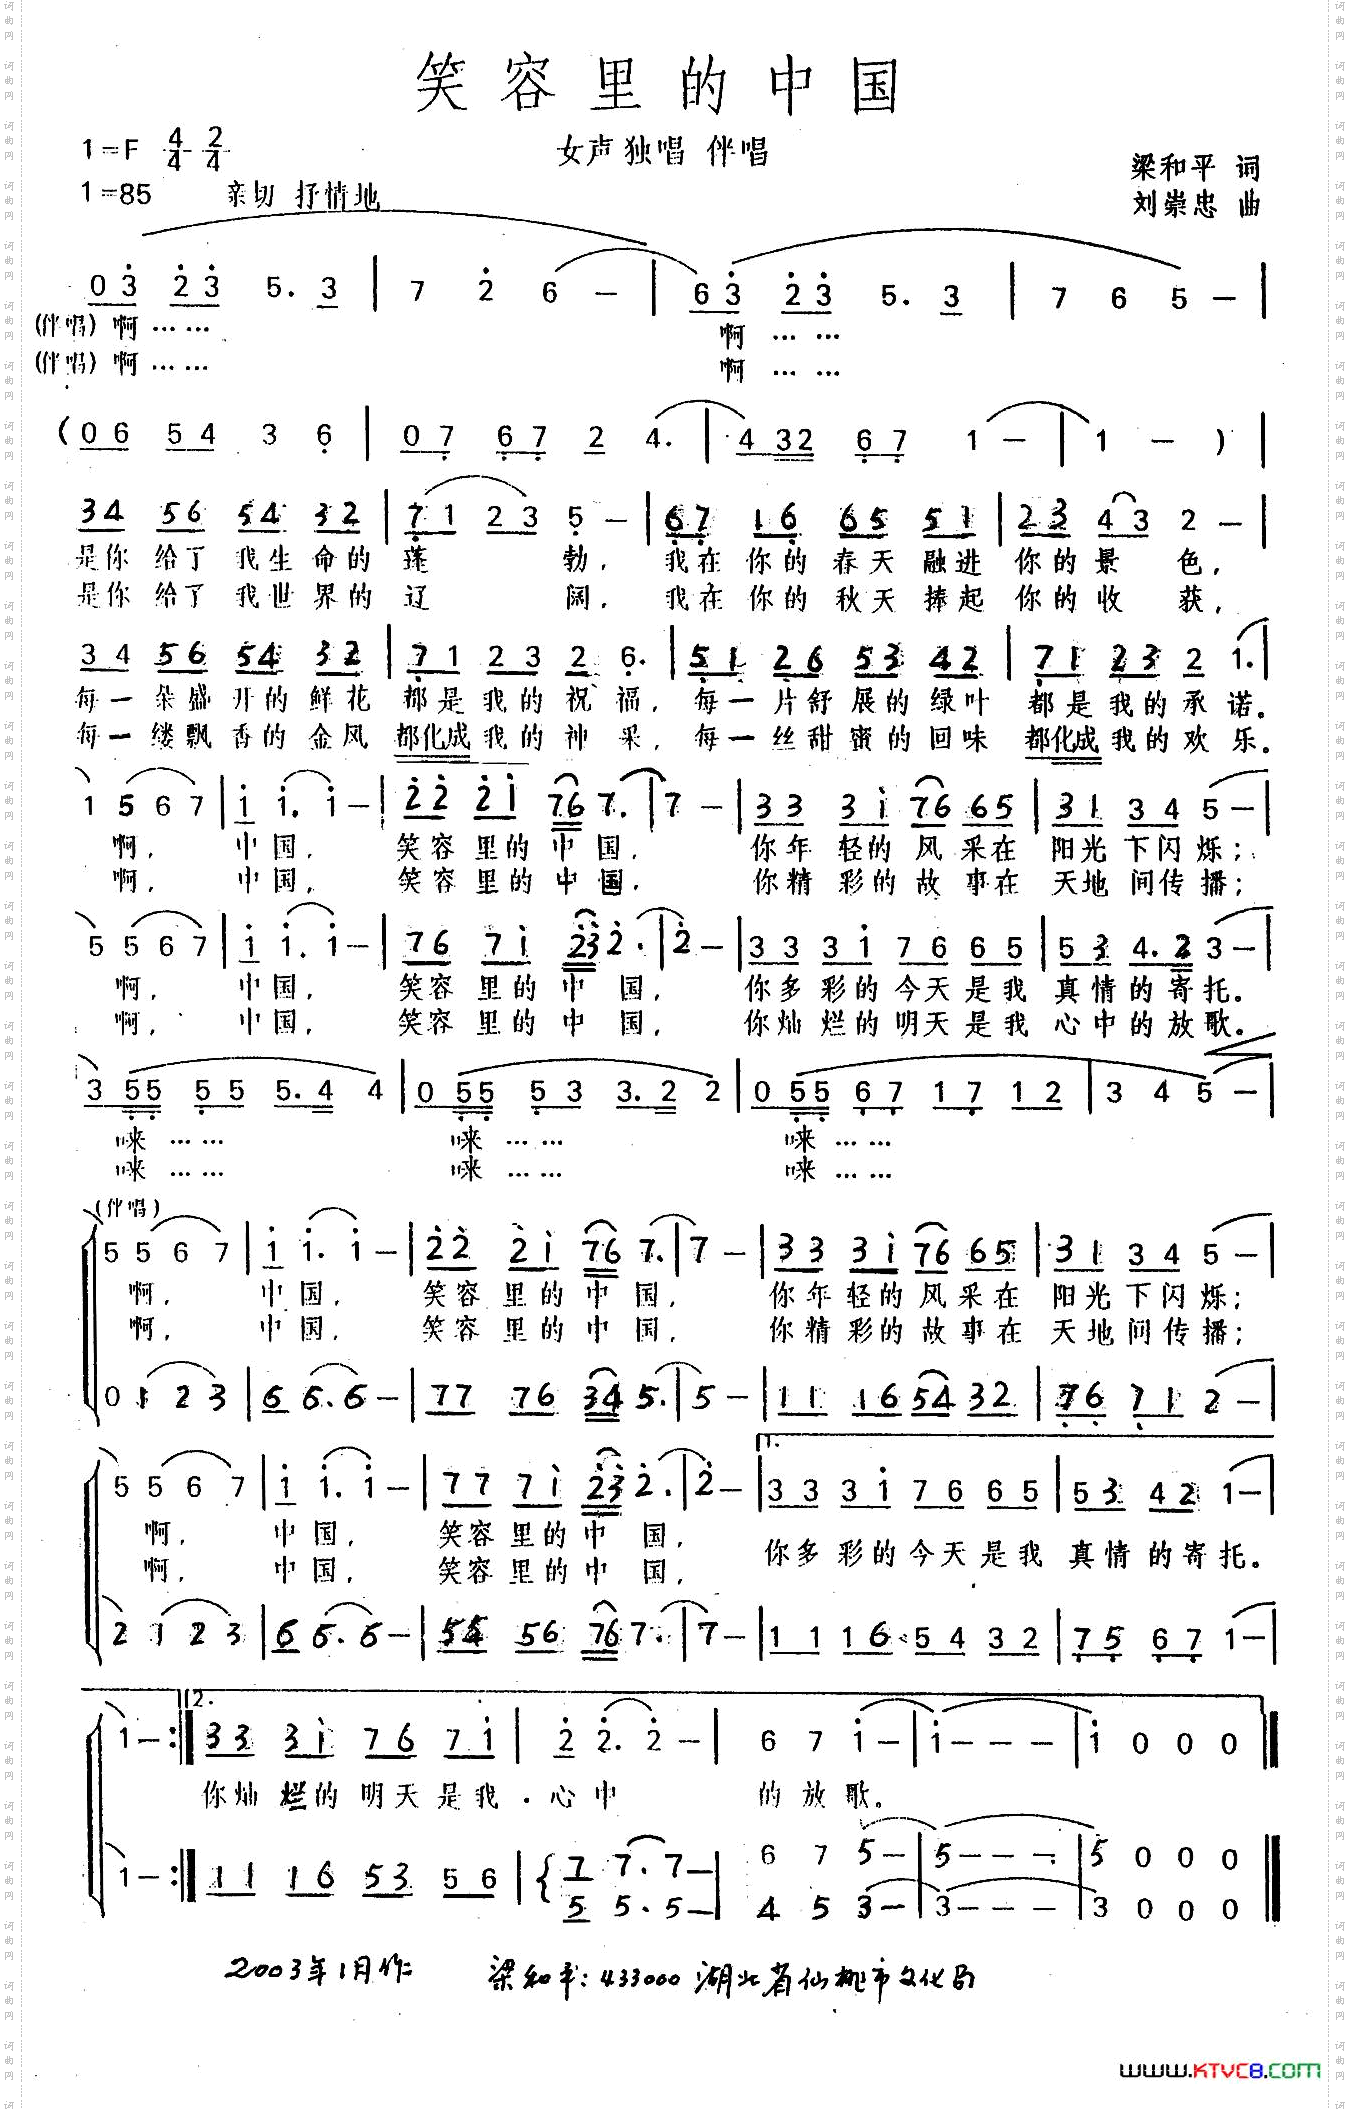 笑容里的中国
1=F 4/4 2/4 女声独唱 伴唱
梁和平 词
1=85 亲切 抒情地
刘崇忠 曲
0 3 2 3 5. 3 | 7 2 6 — | 6 3 2 3 5. 3 | 7 6 5 — |
(伴唱) 啊 …… 啊 ……
(伴唱) 啊 …… 啊 ……
( 0 6 5 4 3 6 | 0 7 6 7 2 4. | 4 3 2 6 7 1 — | 1 — ) |
3 4 5 6 5 4 3 2 | 7 1 2 3 5 — | 6 7 1 6 6 5 5 1 | 2 3 4 3 2 — |
是你 给了 我生 命的 蓬 勃, 我在 你的 春天 融进 你的 景 色,
是你 给了 我世 界的 辽 阔, 我在 你的 秋天 捧起 你的 收 获,
3 4 5 6 5 4 3 2 | 7 1 2 3 2 6. | 5 1 2 6 5 3 4 2 | 7 1 2 3 2 1. |
每一 朵盛 开的 鲜花 都是 我的 祝 福, 每一 片舒 展的 绿叶 都是 我的 承 诺。
每一 缕飘 香的 金风 都化成 我的 神 采, 每一 丝甜 蜜的 回味 都化成 我的 欢 乐。
1 5 6 7 | 1 1. 1 — | 2 2 2 1 7 6 7. | 7 — | 3 3 3 1 7 6 6 5 | 3 1 3 4 5 — |
啊, 中 国, 笑容 里的 中 国, 你年 轻的 风 采在 阳光 下闪 烁;
啊, 中 国, 笑容 里的 中 国, 你精 彩的 故 事在 天地 间传 播;
5 5 6 7 | 1 1. 1 — | 7 6 7 1 2 3 2. | 2 — | 3 3 3 1 7 6 6 5 | 5 3 4. 2 3 — |
啊, 中 国, 笑容 里的 中 国, 你多 彩的 今天 是我 真情 的寄 托。
啊, 中 国, 笑容 里的 中 国, 你灿 烂的 明天 是我 心中 的放 歌。
3 5 5 5 5 5. 4 4 | 0 5 5 5 3 3. 2 2 | 0 5 5 6 7 1 7 1 2 | 3 4 5 — |
唻 …… 唻 …… 唻 ……
唻 …… 唻 …… 唻 ……
(伴唱)
5 5 6 7 | 1 1. 1 — | 2 2 2 1 7 6 7. | 7 — | 3 3 3 1 7 6 6 5 | 3 1 3 4 5 — |
啊, 中 国, 笑容 里的 中 国, 你年 轻的 风 采在 阳光 下闪 烁;
啊, 中 国, 笑容 里的 中 国, 你精 彩的 故 事在 天地 间传 播;
0 1 2 3 | 6 6. 6 — | 7 7 7 6 3 4 5. | 5 — | 1 1 1 6 5 4 3 2 | 7 6 7 1 2 — |
1.
5 5 6 7 | 1 1. 1 — | 7 7 7 1 2 3 2. | 2 — | 3 3 3 1 7 6 6 5 | 5 3 4 2 1 — |
啊, 中 国, 笑容 里的 中 国, 你多 彩的 今天 是我 真情 的寄 托。
啊, 中 国, 笑容 里的 中 国,
2 1 2 3 | 6 6. 6 — | 5 5 5 6 7 6 7. | 7 — | 1 1 1 6 5 4 3 2 | 7 5 6 7 1 — |
2.
1 — :| 3 3 3 1 7 6 7 1 | 2 2. 2 — | 6 7 1 — | 1 — — — | 1 0 0 0 |
你灿 烂的 明天 是我 . 心中 的 放 歌。
1 — :| 1 1 1 6 5 3 5 6 | 7 7. 7 — | 6 7 5 — | 5 — — — | 5 0 0 0 |
5 5. 5 — | 4 5 3 — | 3 — — — | 3 0 0 0 |
2003年1月作 梁和平: 433000 湖北省仙桃市文化局
www.KTVC8.com